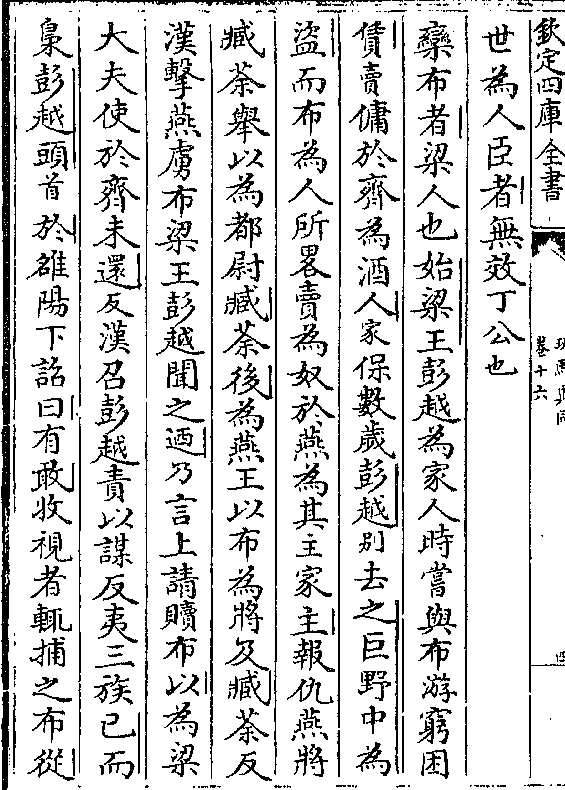 欽定四庫全書
班馬異同
卷十六
四
世為人臣者無效丁公也
欒布者梁人也始梁王彭越為家人時嘗與布游窮困
賃賣傭於齊為酒人家保數歲彭越别去之巨野中為
盜而布為人所畧賣為奴於燕為其主家主報仇燕將
臧荼舉以為都尉臧荼後為燕王以布為將及臧荼反
漢擊燕虜布梁王彭越聞之迺乃言上請贖布以為梁
大夫使於齊未還反漢召彭越責以謀反夷三族已而
梟彭越頭首於雒陽下詔曰有敢收視者輒捕之布從